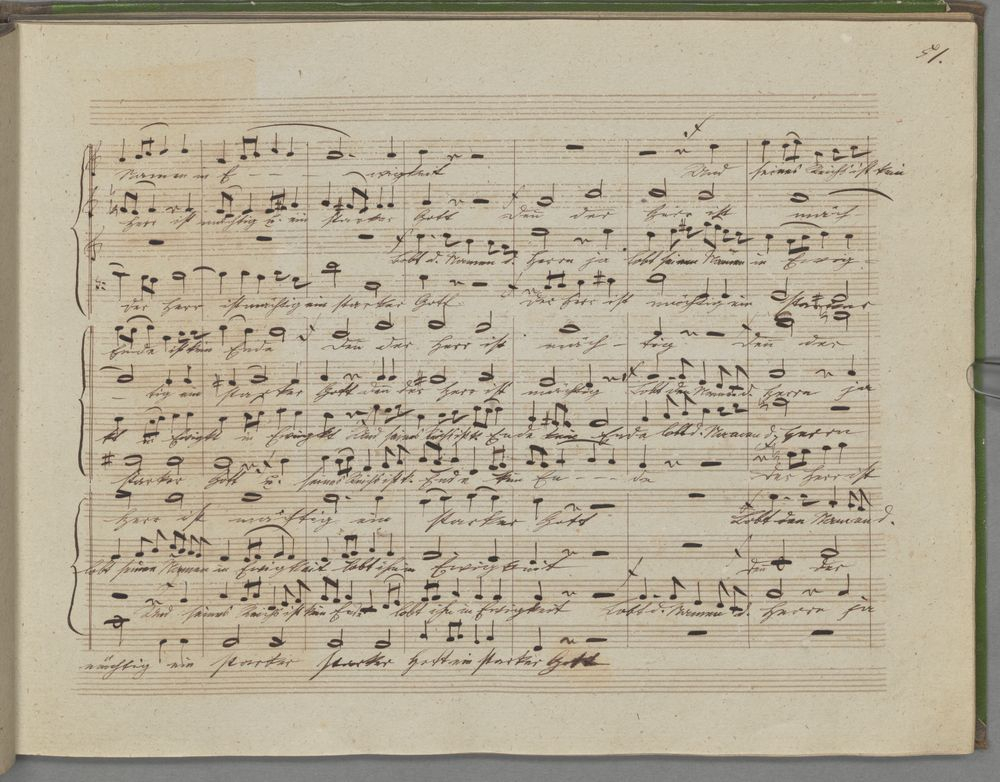 51.
Namen in E - - - wigkeit Und seines Reichs ist kein
Herr ist mächtig u. ein starker Gott Denn der Herr ist mäch-
lobt d. Namen d. Herrn ja lobt seinen Namen in Ewig-
der Herr ist mächtig ein starker Gott der Herr ist mächtig ein starker
Ende ist kein Ende Denn der Herr ist mäch - tig denn der
- tig ein starker Gott denn der Herr ist mächtig Lobt den Namen d. Herrn ja
in Ewigkt Und seines Ende kein Ende lobt d. Namen d. Herrn
starker Gott u. seines Reichs ist Ende kein En - - - de der Herr ist
Herr ist mächtig ein starker Gott Lobt den Namen d.
lobt seinen Namen in Ewigkeit lobt ihn in Ewigkeit denn der
Und seines Reichs ist kein Ende lobt ihn in Ewigkeit Lobt d. Namen d. Herrn ja
mächtig ein starker starker Gott ein starker Gott